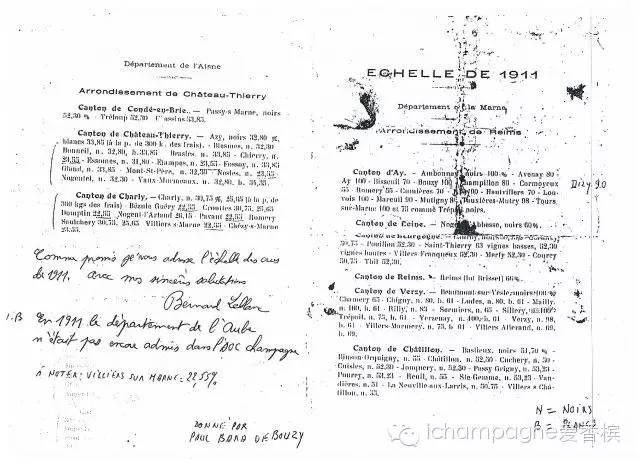 Département de l'Aisne
Arrondissement de Château-Thierry
Canton de Condé-en-Brie. — Passy-s Marne, noirs
52,30 % Tréloup 52,30
Canton de Château-Thierry. — Azy, noirs 32,80 %,
blancs 33,85 (à la p. de 300 k. des frais). - Blesmes, n. 32,30
Bonneil, n. 32,80, b. 33,85 Brasles, n. 33,85 - Chierry, n.
23,55 - Essommes, n. 31,80 - Etampes, n. 23,55 - Fossoy, n. 33,85
Gland, n. 33,85 - Mont-St-Père, n. 32,30 Nesles, n. 23,55
Nogentel, n. 32,30 - Vaux
Canton de Charly. — Charly, n. 30,75 %, 25,65 (à la p. de
300 kgs des frais) - Bézule Guéry 22,55 Crouttes 30,75, 25,65
Domptin 22,55 Nogent-l'Artaud 26,15 Pavant 22,55 Romery
Saulchery 30,75, 25,65 Villiers s-Marne 22,55 - Chézy-s-Marne
23.55.
Comme promis je vous adresse l'échelle des crus
de 1911. avec mes sincères salutations
Bernard
N.B En 1911 le département de l'Aube
n'était pas encore admis dans l'AOC champagne
A NOTER: VILLIERS SUR MARNE = 22,55%
DONNÉ PAR
PAUL BARA DE BOUZY
ECHELLE DE 1911
Département de la Marne
Arrondissement de Reims
Canton d'Ay. - Ambonnay noirs 100 % - Avenay 80 -
Ay 100 - Bisseuil 70 - Bouzy 100 Champillon 80 - Cormoyeux
55 Romery 55 - Cumières 70 Hautvillers 70 - Lou-
vois 100 - Mareuil 90 - Mutigny 8 Tauxières-Mutry 98 - Tours
sur-Marne 100 et 75 comme Trépail noirs.
Dizy 90
Canton de Reims, noirs 60%.
50,75 - Pouillon 52,30 - Saint-Thierry 63 vignes basses, 52,30
vignes hautes - Villers Franqueux 52,30 - Merfy 52,30 - Courcy
50,75 - Thil 52,30.
Canton de Reims. - Reims (lot Brisset) 66%.
Canton de Verzy. - Beaumont-sur-Vesle, noirs 100 %
Chamery 65 - Chigny, n. 80, b. 61 - Ludes, n. 80, b. 61 - Mailly,
n. 100, b. 61 - Rilly, n. 83 - Sermiers, n. 65 - Sillery, n. 100
Trépail, n. 75, b. 61 - Verzenay, n. 100, b. 61 - Verzy, n. 98,
b. 61 - Villers-Marmery, n. 75, b. 61 - Villers Allerand, n. 69,
b. 69.
Canton de Châtillon. - Baslieux, noirs 51,70 % -
Binson-Orquigny, n. 55 - Châtillon, n. 52,30 - Cuchery, n. 50 -
Cuisles, n. 52,30 - Jonquery, n. 52,30 - Passy Grigny, n. 53,23 -
Pourcy, n. 53,23 - Reuil, n. 55 - Ste-Gemme, n. 53,23 - Van-
dières, n. 51 - La Neuville-aux-Larris, n. 50,75 - Villers s-Châ-
tillon, n. 53.
N = NOIRS
B = BLANCS
ichampagne爱香槟